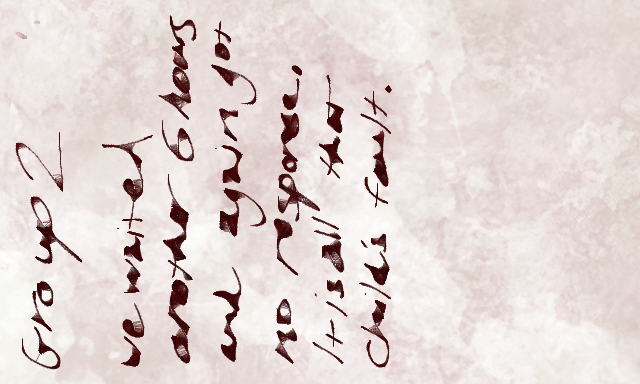 Group 2
we waited
another 6 hours
and again got
no response.
It is all that
Child's fault.